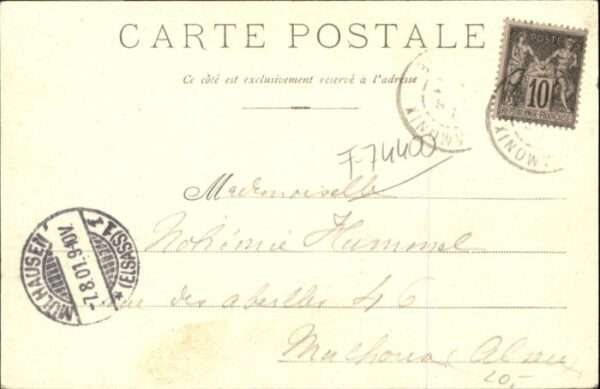 CARTE POSTALE
Ce côté est exclusivement reservé à l'adresse
POSTE
10
RÉPUBLIQUE FRANÇAISE
MONIX
F-74400
Mademoiselle
Hummel
des abeilles 46
MÜLHAUSEN
(ELSASS) 1
-7.8.01.9-10V.
20-